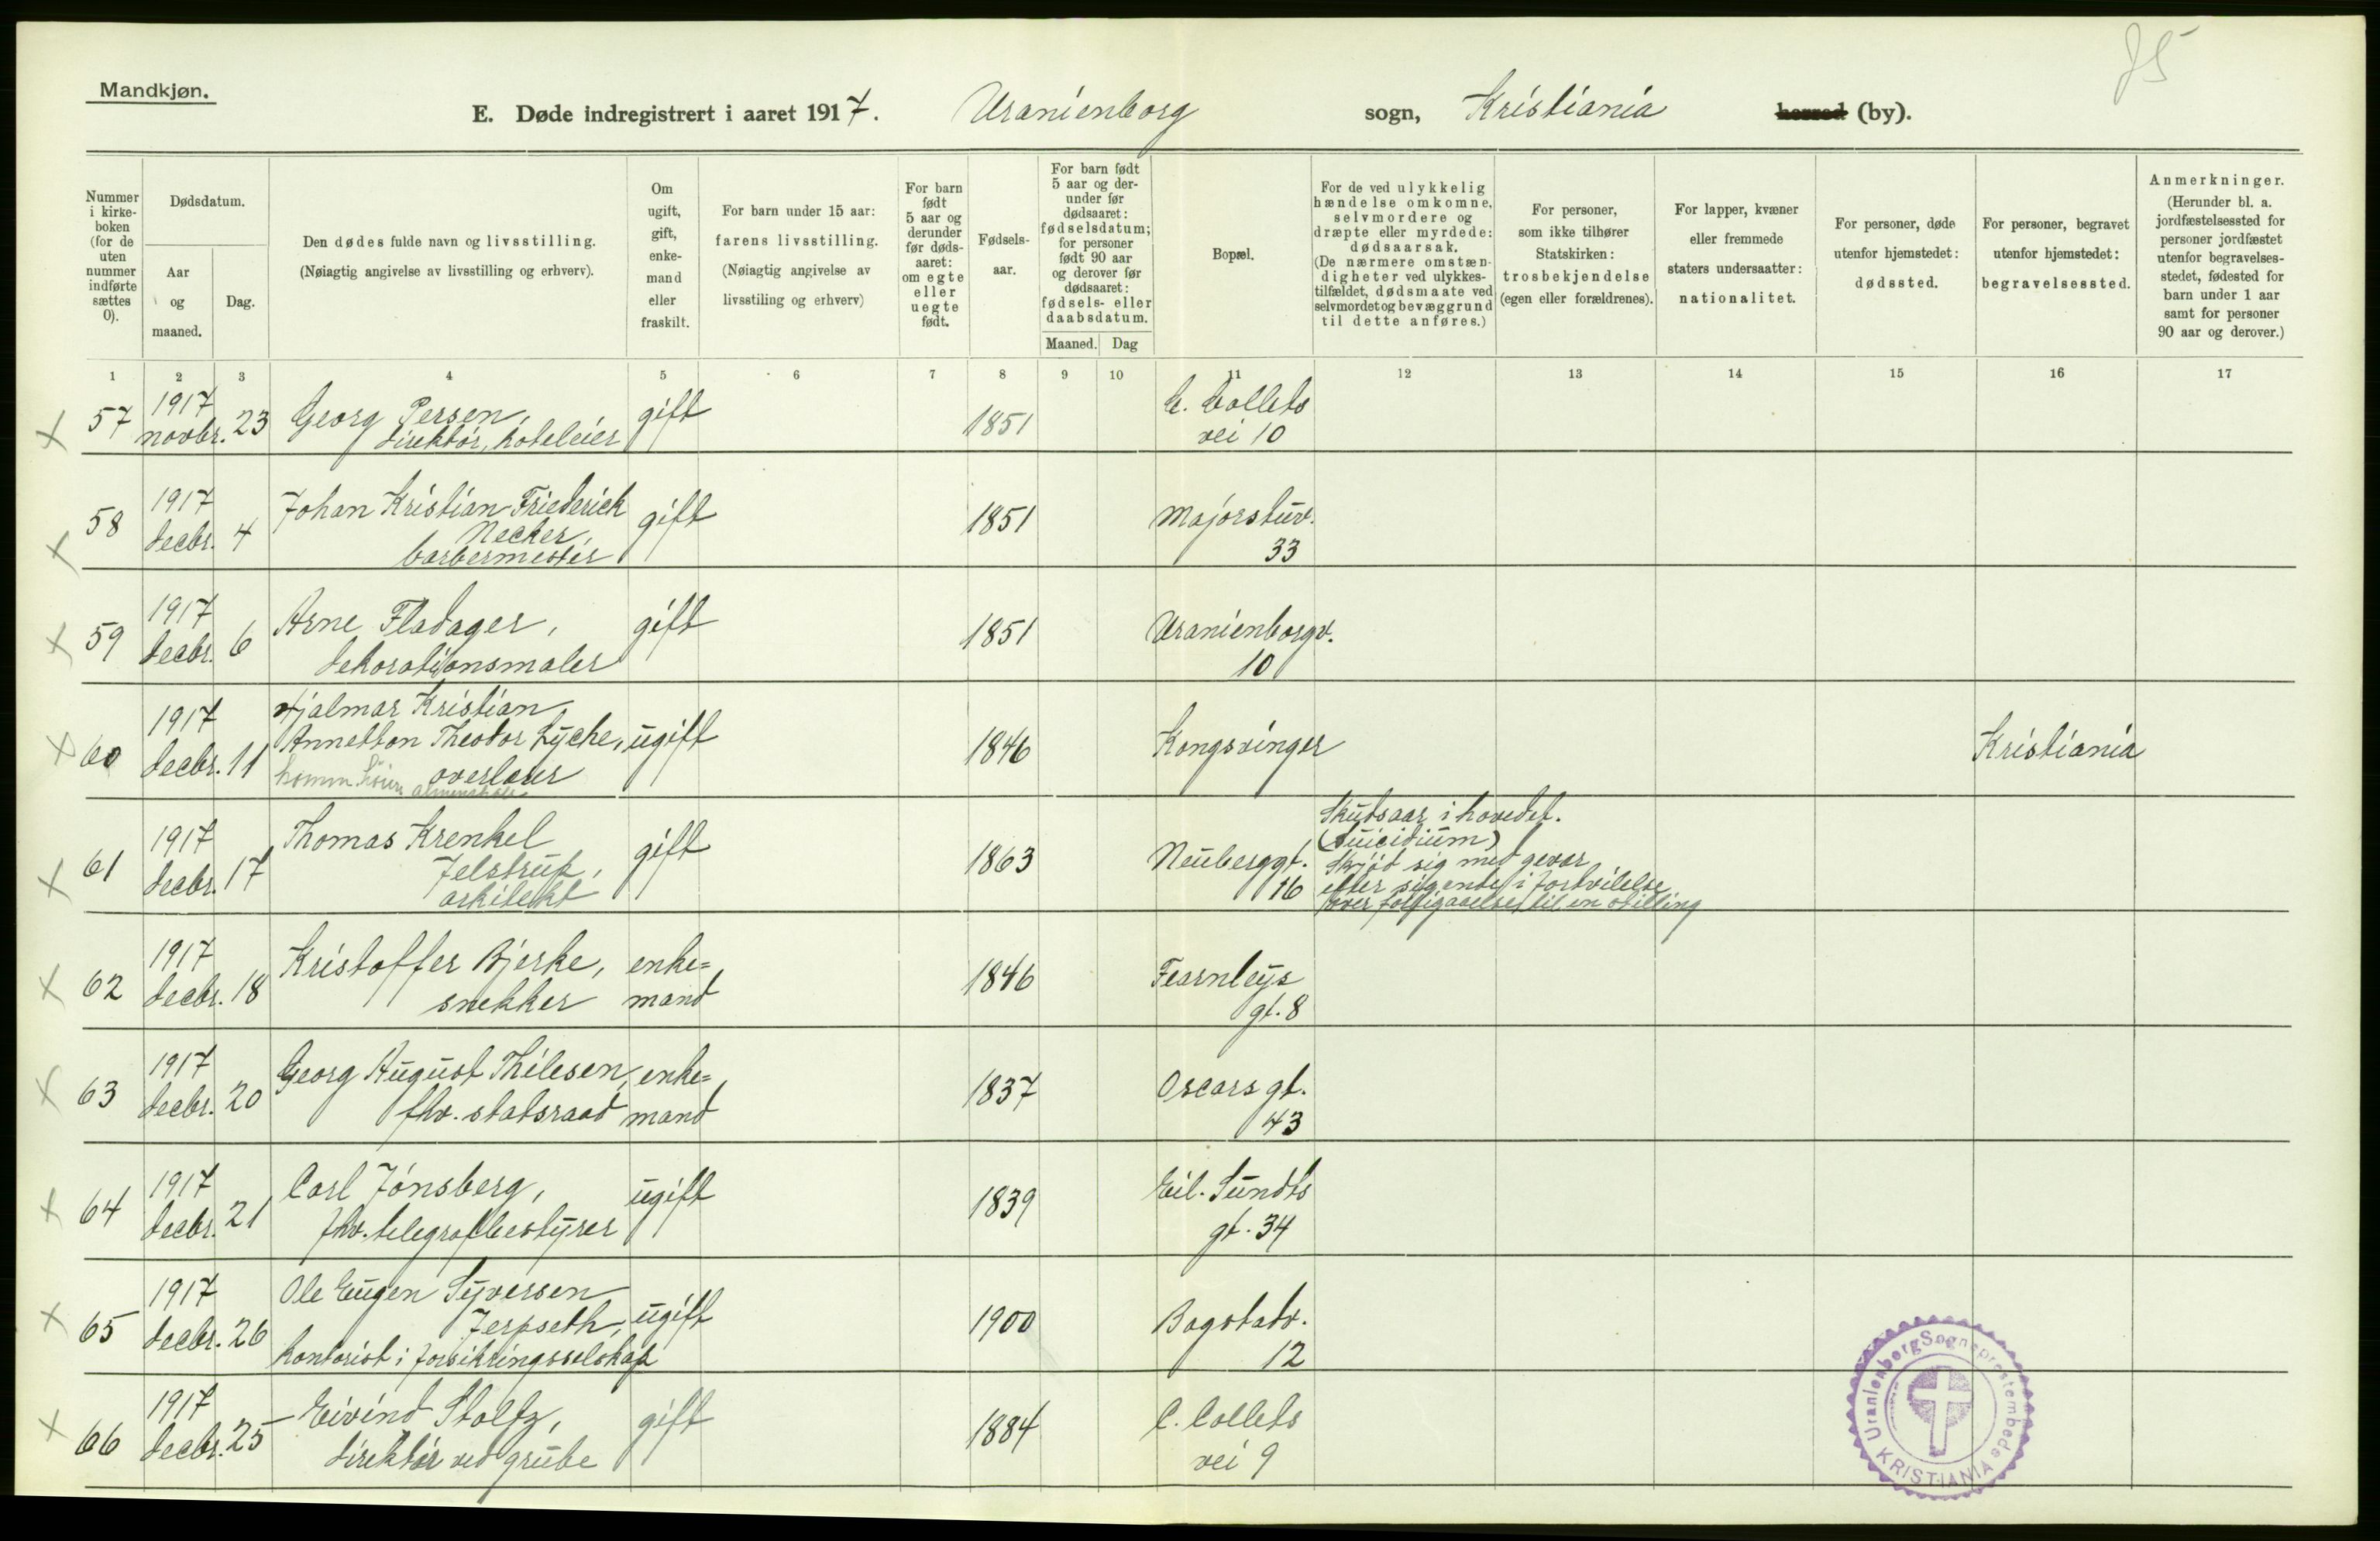 75
Mandkjøn.
E. Døde indregistrert i aaret 1917. Uranienborg sogn, Kristiania herred (by).
Nummer i kirkeboken (for de uten nummer indførte sættes 0).
Dødsdatum.
Aar og maaned.
Dag.
Den dødes fulde navn og livsstilling.
(Nøiagtig angivelse av livsstilling og erhverv).
Om ugift, gift, enkemand eller fraskilt.
For barn under 15 aar:
farens livsstilling.
(Nøiagtig angivelse av
livsstiling og erhverv)
For barn født 5 aar og derunder før dødsaaret: om egte eller uegte født.
Fødselsaar.
For barn født 5 aar og derunder før dødsaaret: fødselsdatum; for personer født 90 aar og derover før dødsaaret: fødsels- eller daabsdatum.
Maaned. Dag
Bopæl.
For de ved ulykkelig hændelse omkomne, selvmordere og dræpte eller myrdede: dødsaarsak. (De nærmere omstændigheter ved ulykkestilfældet, dødsmaate ved selvmordet og bevæggrund til dette anføres.)
For personer, som ikke tilhører Statskirken: trosbekjendelse (egen eller forældrenes).
For lapper, kvæner eller fremmede staters undersaatter: nationalitet.
For personer, døde utenfor hjemstedet: dødssted.
For personer, begravet utenfor hjemstedet: begravelsessted.
Anmerkninger.
(Herunder bl. a. jordfæstelsessted for personer jordfæstet utenfor begravelsesstedet, fødested for barn under 1 aar samt for personer 90 aar og derover.)
1 2 3 4 5 6 7 8 9 10 11 12 13 14 15 16 17
x 57 1917 novbr. 23 Georg Persen, gift 1851 C. Collets
direktør, hoteleier vei 10
x 58 1917 decbr. 4 Johan Kristian Friederich gift 1851 Majorstuv.
Necker, 33
barbermester
x 59 1917 decbr. 6 Arne Fladager, gift 1851 Uranienborgv.
dekorationsmaler 10
x 60 1917 decbr. 11 Hjalmar Kristian
Annetton Theodor Lyche, ugift 1846 Kongsvinger Kristiania
overlærer
x 61 1917 decbr. 17 Thomas Krenkel gift 1863 Neuberggt. Skudsaar i hovedet.
Jelstrup, 16 (Suicidium)
arkitekt Skjöd sig med gevær
efter sigende i fortvilelse
over forbigaaelse til en stilling
x 62 1917 decbr. 18 Kristoffer Bjerke, enke= 1846 Fearnleys
snekker mand gt. 8
x 63 1917 decbr. 20 Georg August Thilesen, enke= 1837 Oscars gt.
fhv. statsraad mand 43
x 64 1917 decbr. 21 Carl Jönsberg, ugift 1839 Eil. Sundts
fhv. telegrafbestyrer gt. 34
x 65 1917 decbr. 26 Ole Eugen Syversen
Jerpseth, ugift 1900 Bogstadv.
kontorist i forsikringsselskap 12
x 66 1917 decbr. 25 Eivind Stoltz, gift 1884 C. Collets
direktör ved grube vei 9
Uranienborg Sogneprestembede
KRISTIANIA